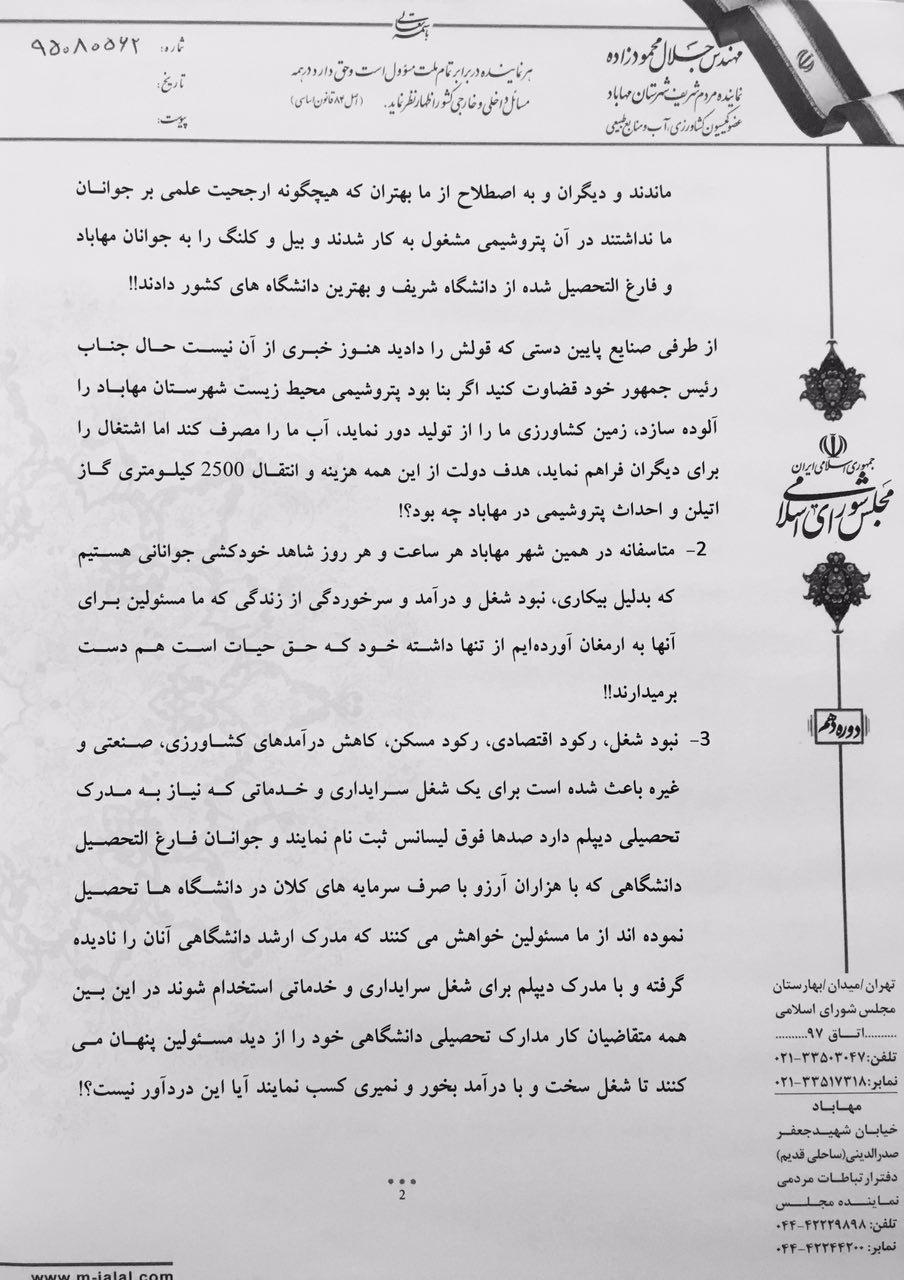 باسمه تعالی
مهندس جلال محمودزاده
نماینده مردم شریف شهرستان مهاباد
عضو کمیسیون کشاورزی، آب و منابع طبیعی
هر نماینده در برابر تمام ملت مسؤول است و حق دارد در همه
مسائل داخلی و خارجی کشور اظهار نظر نماید. (اصل ۸۴ قانون اساسی)
شماره: ۹۵۰۸۰۵۶۲
تاریخ:
پیوست:
ماندند و دیگران و به اصطلاح از ما بهتران که هیچگونه ارجحیت علمی بر جوانان
ما نداشتند در آن پتروشیمی مشغول به کار شدند و بیل و کلنگ را به جوانان مهاباد
و فارغ التحصیل شده از دانشگاه شریف و بهترین دانشگاه های کشور دادند!!
از طرفی صنایع پایین دستی که قولش را دادید هنوز خبری از آن نیست حال جناب
رئیس جمهور خود قضاوت کنید اگر بنا بود پتروشیمی محیط زیست شهرستان مهاباد را
آلوده سازد، زمین کشاورزی ما را از تولید دور نماید، آب ما را مصرف کند اما اشتغال را
برای دیگران فراهم نماید، هدف دولت از این همه هزینه و انتقال 2500 کیلومتری گاز
اتیلن و احداث پتروشیمی در مهاباد چه بود؟!
2- متاسفانه در همین شهر مهاباد هر ساعت و هر روز شاهد خودکشی جوانانی هستیم
که بدلیل بیکاری، نبود شغل و درآمد و سرخوردگی از زندگی که ما مسئولین برای
آنها به ارمغان آورده‌ایم از تنها داشته خود که حق حیات است هم دست
برمیدارند!!
3- نبود شغل، رکود اقتصادی، رکود مسکن، کاهش درآمدهای کشاورزی، صنعتی و
غیره باعث شده است برای یک شغل سرایداری و خدماتی که نیاز به مدرک
تحصیلی دیپلم دارد صدها فوق لیسانس ثبت نام نمایند و جوانان فارغ التحصیل
دانشگاهی که با هزاران آرزو با صرف سرمایه های کلان در دانشگاه ها تحصیل
نموده اند از ما مسئولین خواهش می کنند که مدرک ارشد دانشگاهی آنان را نادیده
گرفته و با مدرک دیپلم برای شغل سرایداری و خدماتی استخدام شوند در این بین
همه متقاضیان کار مدارک تحصیلی دانشگاهی خود را از دید مسئولین پنهان می
کنند تا شغل سخت و با درآمد بخور و نمیری کسب نمایند آیا این دردآور نیست؟!
...
2
جمهوری اسلامی ایران
مجلس شورای اسلامی
دوره دهم
تهران/میدان/بهارستان
مجلس شورای اسلامی
.........اتاق ۹۷.........
تلفن: ۳۳۵۰۳۰۴۷-۰۲۱
نمابر: ۳۳۵۱۷۳۱۸-۰۲۱
مهاباد
خیابان شهیدجعفر
صدرالدینی(ساحلی قدیم)
دفتر ارتباطات مردمی
نماینده مجلس
تلفن: ۴۲۲۲۹۸۹۸-۰۴۴
نمابر: ۴۲۲۴۴۲۰۰-۰۴۴
www.m-jalal.com